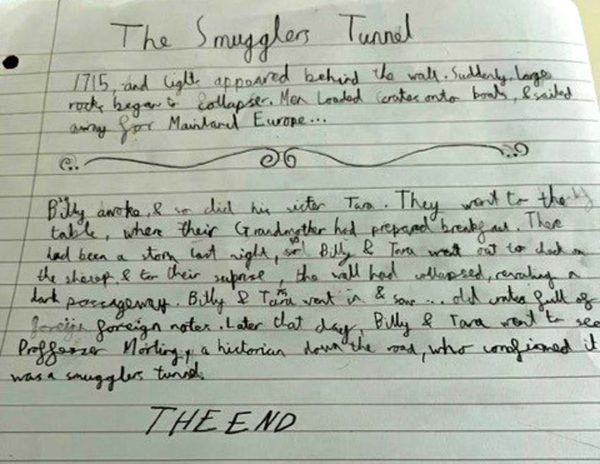 The Smugglers Tunnel
1715, and light appeared behind the wall. Suddenly, Large
rocks began to collapse. Men Loaded crates onto boats, & sailed
away for Mainland Europe...
Billy awoke, & so did his sister Tara. They went to the
table, where their Grandmother had prepared breakfast. There
had been a storm last night, so Billy & Tara went out to check on
the sheep, & to their suprise, the wall had collapsed, revealing a
dark passageway. Billy & Tara went in & saw... old crates full of
foreign notes. Later that day, Billy & Tara went to see
Proffeszer Morling, a historian down the road, who confirmed it
was a smugglers tunnel.
THE END